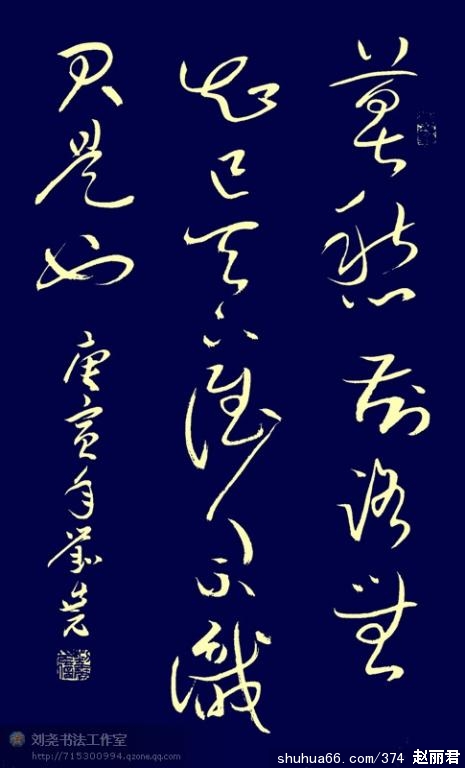 莫愁前路無
知己天下誰人不識
君是也
庚寅年劉堯
刘尧书法工作室
http://715300994.qzone.qq.com
shuhua66.com/374 赵丽君